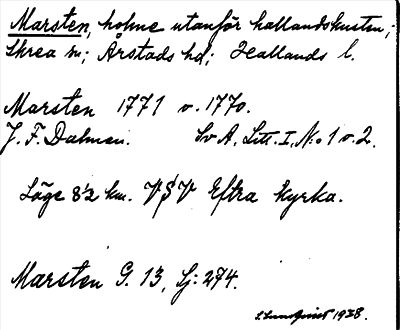 Marsten, holme utanför hallandskusten;
Skrea sn; Årstads hd; Hallands l.
Marsten 1771 o. 1770.
J. F. Dalman. Sv A. Litt. I, N:o 1 o. 2.
Läge 8½ km. VSV Eftra kyrka.
Marsten G. 13, Sj: 274.
S. Lundquist 1938.